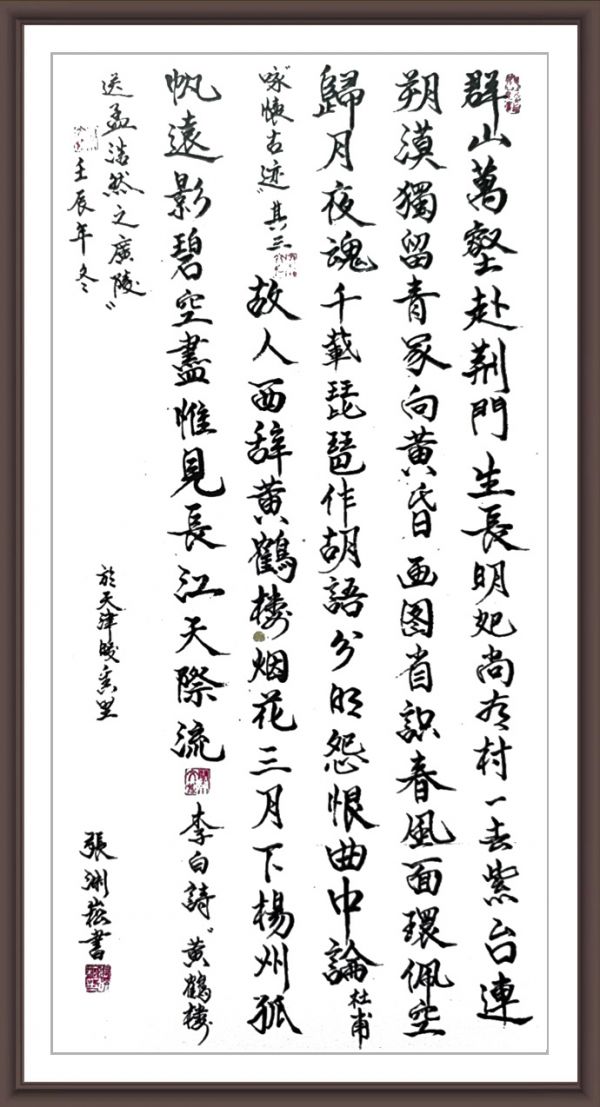 群山萬壑赴荆門生長明妃尚有村一去紫台連
朔漠獨留青冢向黄昏画图省識春風面環佩空
歸月夜魂千載琵琶作胡語分明怨恨曲中論杜甫
"咏懷古迹"其三故人西辞黄鶴楼烟花三月下楊州孤
帆遠影碧空盡惟見長江天際流李白詩"黄鶴楼
送孟浩然之廣陵"
壬辰年冬
於天津
張淵崧書